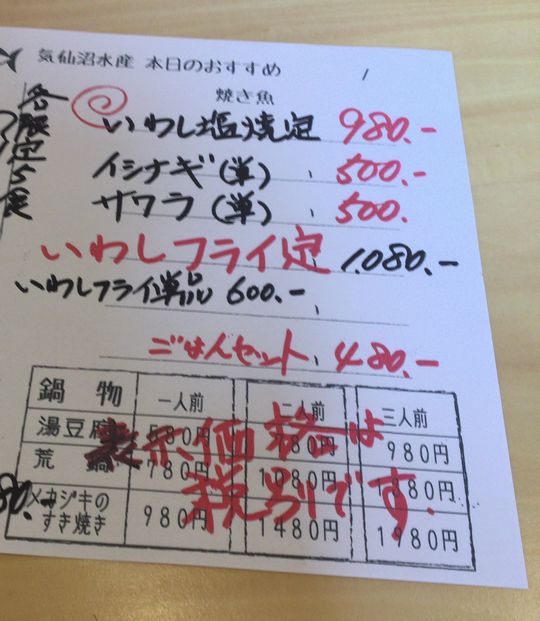 気仙沼水産 本日のおすすめ
焼き魚
各限定5食
いわし塩焼定 980.-
イシナギ(単) 500.-
サワラ(単) 500.
いわしフライ定 1.080.-
いわしフライ単品 600.-
ごはんセット 480.-
鍋物 一人前 二人前 三人前
湯豆腐 580円 980円
荒鍋 780円 1080円
メカジキのすき焼き 980円 1480円 1980円
表示価格は
税別です.